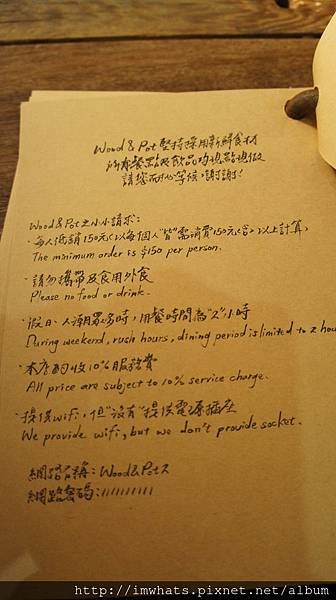 Wood & Pot 堅持採用新鮮食材
所有餐點與飲品均現點現做
請您耐心等候,謝謝!
Wood & Pot 之小小請求:
·每人低消150元(以每個人"皆"需消費150元(含)以上計算)
The minimum order is $150 per person.
·請勿攜帶及食用外食
Please no food or drink.
·假日、人潮眾多時,用餐時間為"2"小時
During weekend, rush hours, dining period is limited to 2 hou
·本店酌收10%服務費
All price are subject to 10% service charge.
·提供wifi,但"沒有"提供電源插座
We provide wifi, but we don't provide socket.
網路名稱:Wood&Pot2
網路密碼:1111111111
http://imwhats.pixnet.net/album